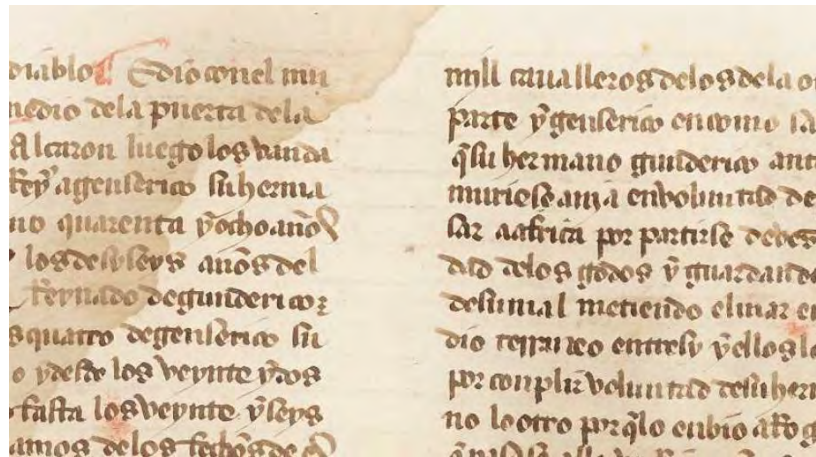 diablo E dio con el mu
medio dela puerta dela
Alcaron luego los vanda
Rey a genserico su herma
no quarenta y ocho años
los deseseys años del
Reynado de gunderico z
quatro de genserico su
o y desde los veynte y dos
fasta los veynte y seys
amos de los fechos de
mill caualleros delos dela o
parte y genserico en como sa
q̃ su hermano gunderico ant
muriese auia en voluntad de
sar a africa por partirse de
dad delos godos y guardando
de su mal metiendo el mar en
dio terraneo entresy y ellos
por conplir voluntad de su her
no lo otro por q̃ lo enbio a